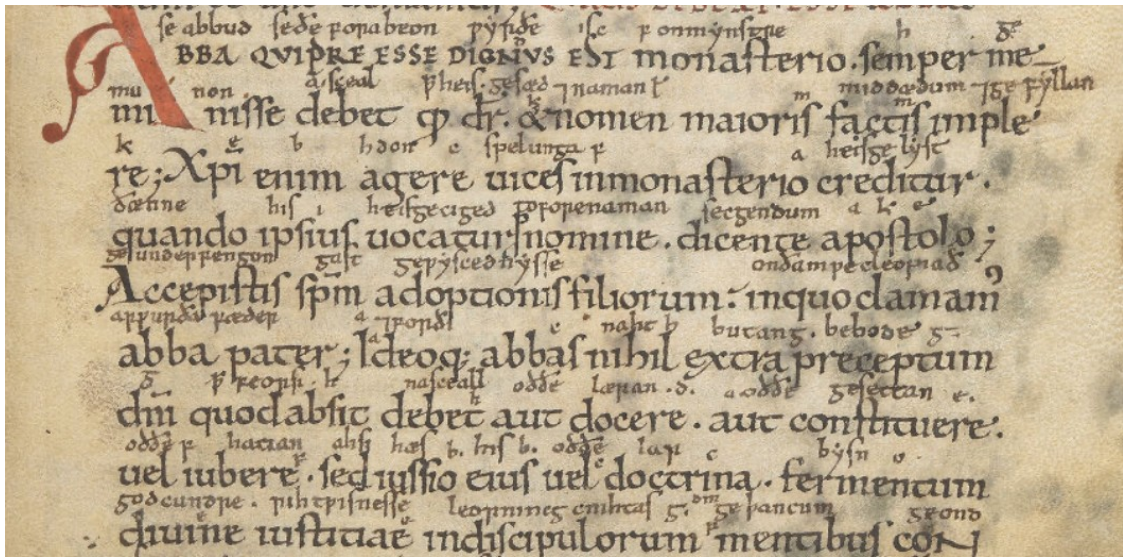 se abbud seðe forabeon pyrðe is c r onmynstre h ðe
ABBA QUI PRE ESSE DIGNUS EST monasterio. semper me
mu non sceal þ heis gesæd ⁊naman ł m middædum ⁊gefyllan
minisse debet qđ dr̄. & nomen maioris factis imple
k e b h don e spelunga r a heisgelyft
re; Xp̄i enim agere uices inmonasterio creditur.
ðænne his i heisgeciged toforenaman secgendum a k e
quando ipsius uocatur p̄nomine. dicente apostolo;
geunderfengon gast gepyscedhysse ondampecleopiað
Accepistis sp̄m adoptionis filiorum: inquo clamam᾽
fæder a ⁊forði e naht b butang. bebode g.
abba pater; Ideoq; abbas nihil extra preceptum
þ feorsi. k nasceall oððe læran. d. a oððe gesettan e.
dn̄i quod absit debet aut docere. aut constituere.
oððe r hatan ahsi hæs b. his b. oððe lar c bysn o.
uel iubere. sed iussio eius uel doctrina. fermentum
godcundre. rihtpisnesse leorningcnihtas g. geþancum geond
diuine iustitiae indiscipulorum mentibus con